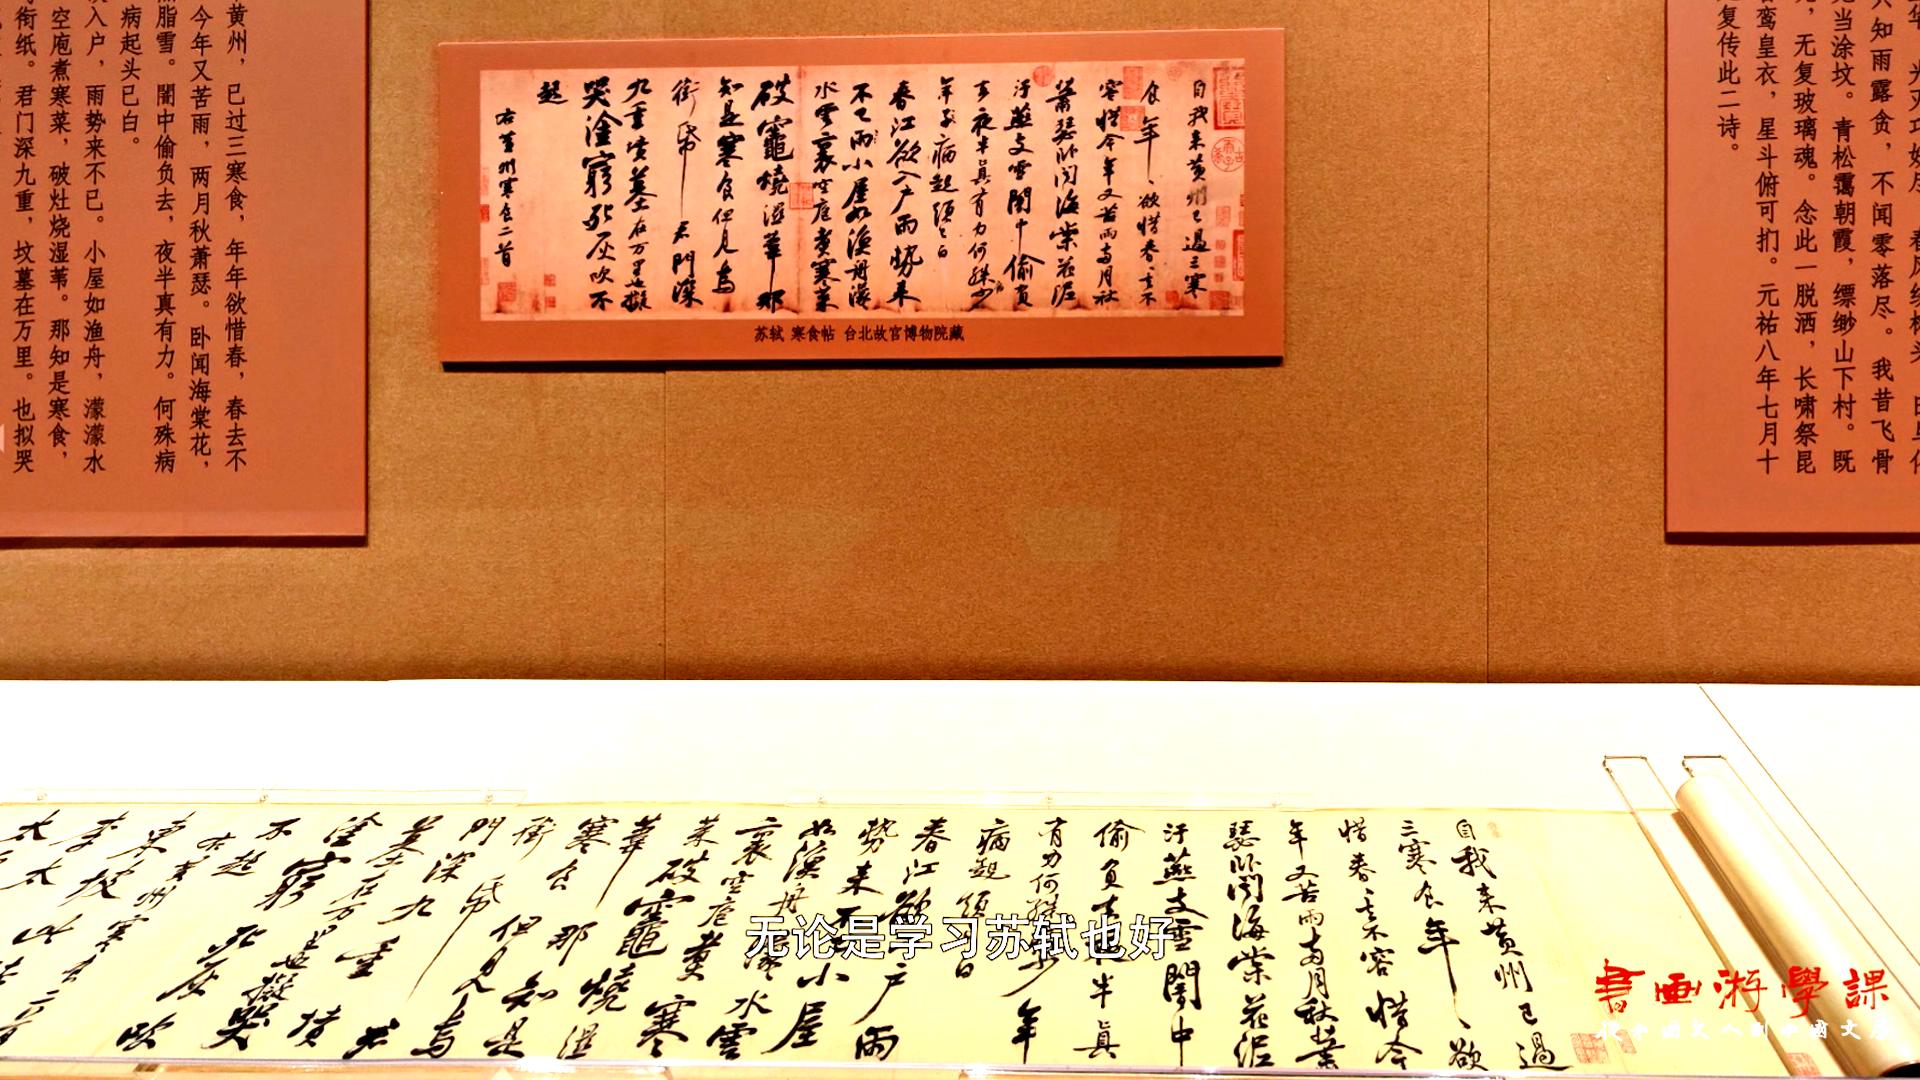 黄州，已过三寒食，年年欲惜春，春去不
今年又苦雨，两月秋萧瑟。卧闻海棠花，
脂雪。闇中偷负去，夜半真有力。何殊病
病起头已白。
入户，雨势来不已。小屋如渔舟，濛濛水
空庖煮寒菜，破灶烧湿苇。那知是寒食，
衔纸。君门深九重，坟墓在万里。也拟哭
自我来黄州已過三寒
食年〻欲惜春〻去不
容惜今年又苦雨兩月秋
蕭瑟卧聞海棠花泥
汙燕支雪闇中偷負
去夜半真有力何殊少
年子病起頭已白
春江欲入户雨勢来
不已雨小屋如漁舟濛〻
水雲裏空庖煮寒菜
破竈燒濕葦那
知是寒食但見烏
銜帋 君門深
九重墳墓在万里也擬
哭塗窮死灰吹不
起
右黄州寒食二首
苏轼 寒食帖 台北故宫博物院藏
知雨露贪，不闻零落尽。我昔飞骨
见当涂坟。青松霭朝霞，缥缈山下村。既
，无复玻璃魂。念此一脱洒，长啸祭昆
鸾皇衣，星斗俯可扪。元祐八年七月十
复传此二诗。
自我来黄州已過
三寒食年〻欲
惜春〻去不容惜今
年又苦雨兩月秋蕭
瑟卧聞海棠花泥
汙燕支雪闇中
偷負去夜半真
有力何殊少年
病起頭白
春江欲入户雨
勢来不已小屋
如漁舟濛水雲
裏空庖煮寒
菜破竈燒濕
葦那知是
寒食但見烏
銜帋君
門深九重墳
墓在万里也擬哭
塗窮死灰吹
不起
右黄州寒食二首
東坡此詩
李太
无论是学习苏轼也好
書画游學課
從中國文人到中國文房